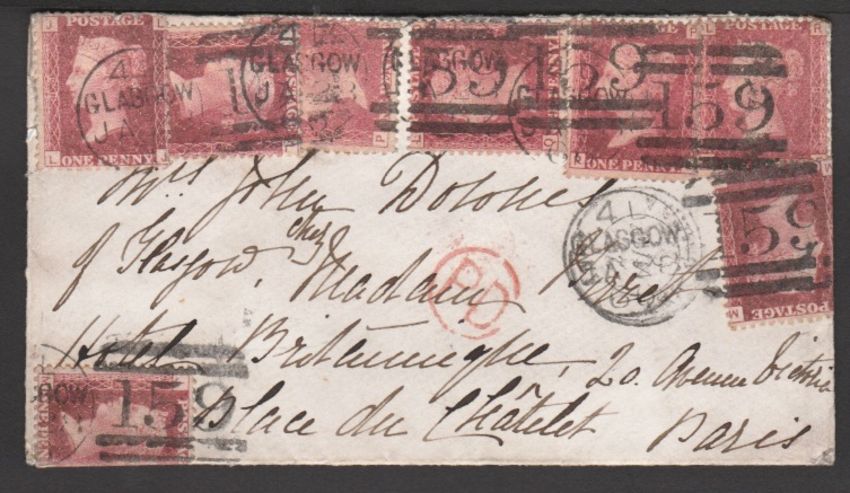 POSTAGE
ONE PENNY
L J
4 L
GLASGOW
JA
159
159
159
R ONE PENNY
P
L R
M
159
POSTAGE
M
Mrs John
of Glasgow chez Madam
4 L
GLASGOW
JA
PD
Hotel Britannique, 20. Avenue Victoria
Place du Châtelet
Paris
GLASGOW
159